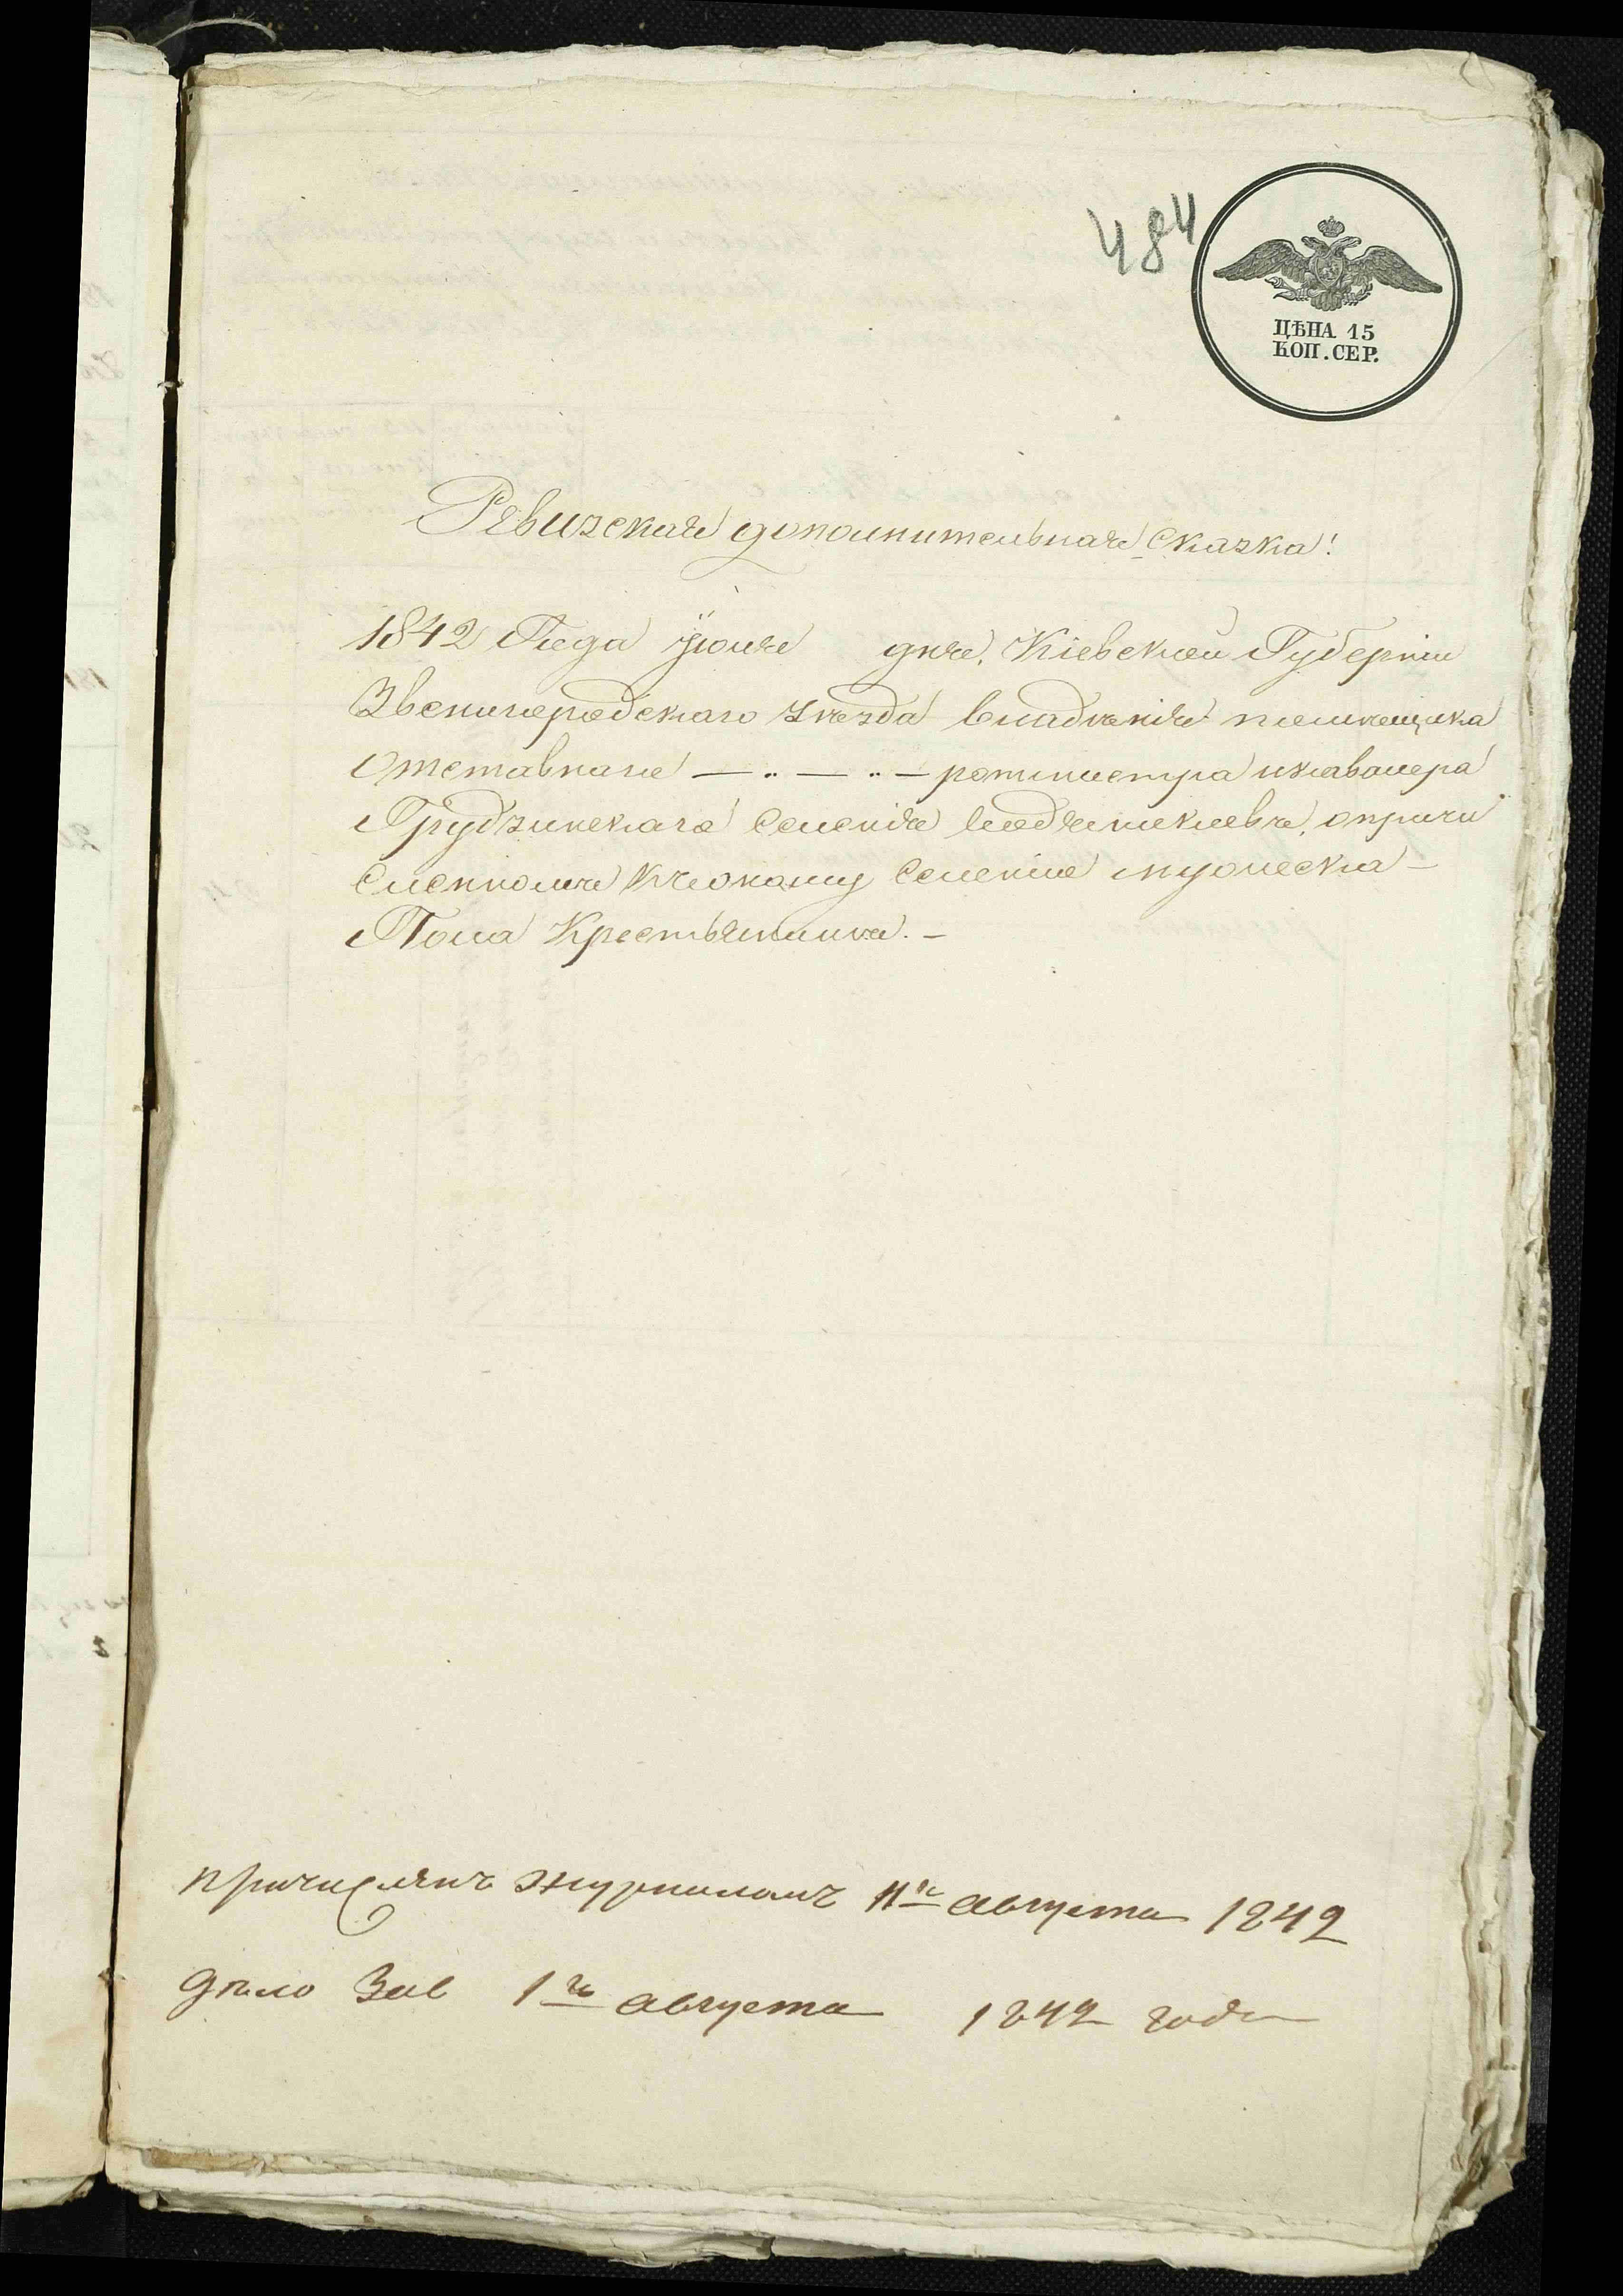 484
ЦѢНА 15
КОП. СЕР.
Ревизская дополнительная сказка!
1842 Года Іюля дня. Кіевской Губерніи
Звенигородского уѣзда владѣнія помѣщика
Отставнаго — .. — .. — ротмистра икавалера
Грудзинскаго Селенія
Селенію мужеска
Пола Крестьянина. —
причисленъ журналомъ 11го августа 1842
дѣло Зав 1го августа 1842 года